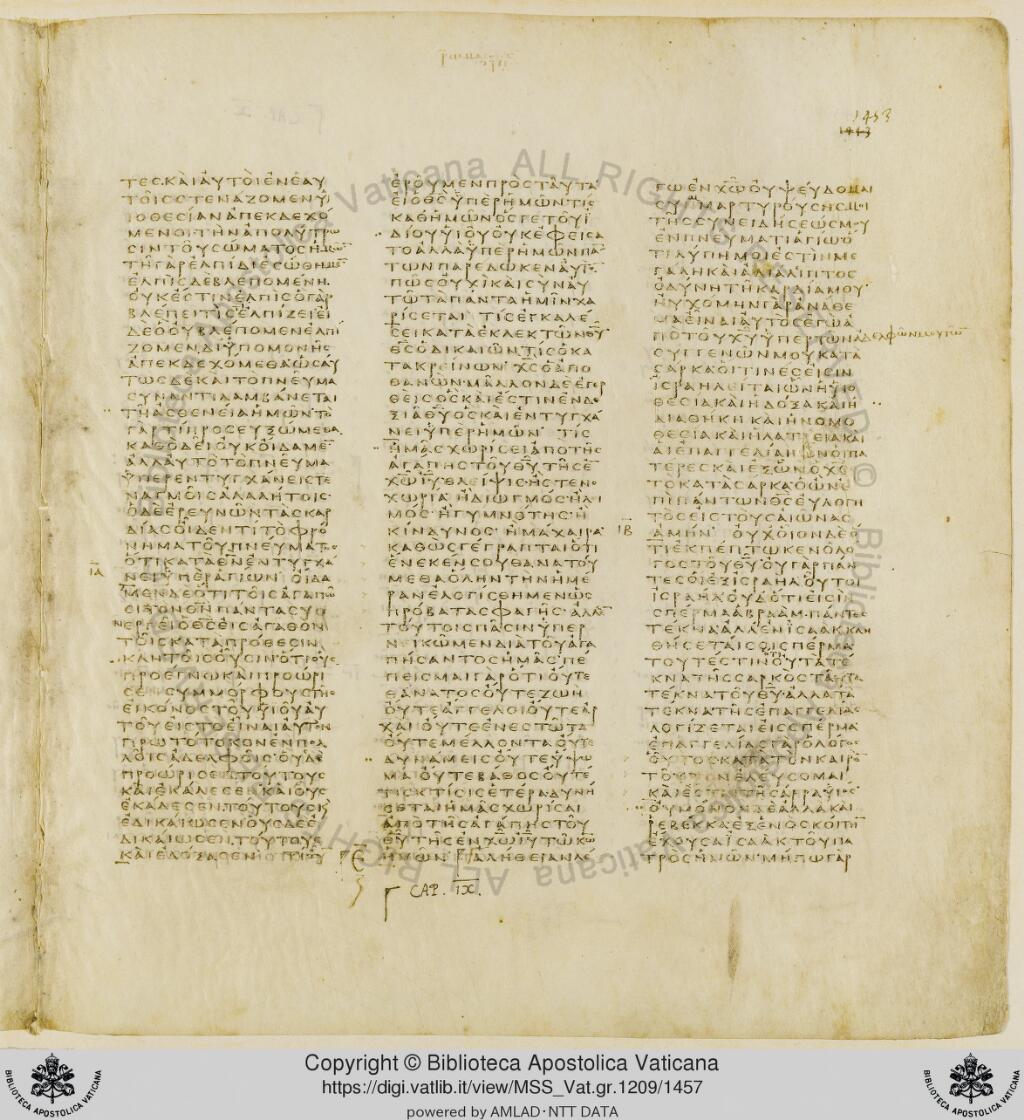 ῥωμαίους
1453
1443
ΤΕϹΚΑΙΑΥΤΟΙΕΝΕΑΥ
ΤΟΙϹϹΤΕΝΑΖΟΜΕΝΥΙ
ΙΟΘΕϹΙΑΝΑΠΕΚΔΕΧΟ
ΜΕΝΟΙΤΗΝΑΠΟΛΥΤΡΩ
ϹΙΝΤΟΥϹΩΜΑΤΟϹΗΜΩΝ
ΤΗΓΑΡΕΛΠΙΔΙΕϹΩΘΗΜΕΝ
ΕΛΠΙϹΔΕΒΛΕΠΟΜΕΝΗ
ΟΥΚΕϹΤΙΝΕΛΠΙϹΟΓΑΡ
ΒΛΕΠΕΙΤΙϹΕΛΠΙΖΕΙΕΙ
ΔΕΟΟΥΒΛΕΠΟΜΕΝΕΛΠΙ
ΖΟΜΕΝΔΙΥΠΟΜΟΝΗϹ
ΑΠΕΚΔΕΧΟΜΕΘΑΩϹΑΥ
ΤΩϹΔΕΚΑΙΤΟΠΝΕΥΜΑ
ϹΥΝΑΝΤΙΛΑΜΒΑΝΕΤΑΙ
ΤΗΑϹΘΕΝΕΙΑΗΜΩΝΤΟ
ΓΑΡΤΙΠΡΟϹΕΥΞΩΜΕΘΑ
ΚΑΘΟΔΕΙΟΥΚΟΙΔΑΜΕ
ΑΛΛΑΥΤΟΤΟΠΝΕΥΜΑ
ΥΠΕΡΕΝΤΥΓΧΑΝΕΙϹΤΕ
ΝΑΓΜΟΙϹΑΛΑΛΗΤΟΙϹ
ΟΔΕΕΡΕΥΝΩΝΤΑϹΚΑΡ
ΔΙΑϹΟΙΔΕΝΤΙΤΟΦΡΟ
ΝΗΜΑΤΟΥΠΝΕΥΜΑΤΟϹ
ΟΤΙΚΑΤΑΘΝΕΝΤΥΓΧΑ
ΙΑ
ΝΕΙΥΠΕΡΑΓΙΩΝ ΟΙΔΑ
ΜΕΝΔΕΟΤΙΤΟΙϹΑΓΑΠΩ
ϹΙΤΟΝΘΝΠΑΝΤΑϹΥΝ
ΕΡΓΕΙΟΘϹΕΙϹΑΓΑΘΟΝ
ΤΟΙϹΚΑΤΑΠΡΟΘΕϹΙΝ
ΚΛΗΤΟΙϹΟΥϹΙΝΟΤΙΟΥϹ
ΠΡΟΕΓΝΩΚΑΙΠΡΟΩΡΙ
ϹΕΝϹΥΜΜΟΡΦΟΥϹΤΗϹ
ΕΙΚΟΝΟϹΤΟΥΥΙΟΥΑΥ
ΤΟΥΕΙϹΤΟΕΙΝΑΙΑΥΤΟΝ
ΠΡΩΤΟΤΟΚΟΝΕΝΠΟΛ
ΛΟΙϹΑΔΕΛΦΟΙϹ ΟΥϹΔΕ
ΠΡΟΩΡΙϹΕΝΤΟΥΤΟΥϹ
ΚΑΙΕΚΑΛΕϹΕΝΚΑΙΟΥϹ
ΕΚΑΛΕϹΕΝΤΟΥΤΟΥϹΚΑΙ
ΕΔΙΚΑΙΩϹΕΝΟΥϹΔΕΕ
ΔΙΚΑΙΩϹΕΝΤΟΥΤΟΥϹ
ΚΑΙΕΔΟΞΑϹΕΝ ΤΙΟΥΝ
ΕΡΟΥΜΕΝΠΡΟϹΤΑΥΤΑ
ΕΙΟΘϹΥΠΕΡΗΜΩΝΤΙϹ
ΚΑΘΗΜΩΝΟϹΓΕΤΟΥΙ
ΔΙΟΥΥΙΟΥΟΥΚΕΦΕΙϹΑ
ΤΟΑΛΛΑΥΠΕΡΗΜΩΝΠΑ
ΤΩΝΠΑΡΕΔΩΚΕΝΑΥΤΟ
ΠΩϹΟΥΧΙΚΑΙϹΥΝΑΥ
ΤΩΤΑΠΑΝΤΑΗΜΙΝΧΑ
ΡΙϹΕΤΑΙ ΤΙϹΕΓΚΑΛΕ
ϹΕΙΚΑΤΑΕΚΛΕΚΤΩΝΘΥ
ΘϹΟΔΙΚΑΙΩΝΤΙϹΟΚΑ
ΤΑΚΡΕΙΝΩΝ ΧϹΟΑΠΟ
ΘΑΝΩΝ ΜΑΛΛΟΝΔΕΕΓΕΡ
ΘΕΙϹΟϹΚΑΙΕϹΤΙΝΕΝΔΕ
ΞΙΑΘΥΟϹΚΑΙΕΝΤΥΓΧΑ
ΝΕΙΥΠΕΡΗΜΩΝ ΤΙϹ
ΗΜΑϹΧΩΡΙϹΕΙΑΠΟΤΗϹ
ΑΓΑΠΗϹΤΟΥΘΥΤΗϹΕ
ΧΩΙΥ ΘΛΕΙΨΙϹ Η ϹΤΕΝΟ
ΧΩΡΙΑ ΗΔΙΩΓΜΟϹ ΗΛΙ
ΜΟϹ ΗΓΥΜΝΟΤΗϹ Η
ΚΙΝΔΥΝΟϹ ΗΜΑΧΑΙΡΑ
ΚΑΘΩϹΓΕΓΡΑΠΤΑΙΟΤΙ
ΕΝΕΚΕΝϹΟΥΘΑΝΑΤΟΥ
ΜΕΘΑΟΛΗΝΤΗΝΗΜΕ
ΡΑΝΕΛΟΓΙϹΘΗΜΕΝΩϹ
ΠΡΟΒΑΤΑϹΦΑΓΗϹ ΑΛΛΕ
ΤΟΥΤΟΙϹΠΑϹΙΝΥΠΕΡ
ΝΙΚΩΜΕΝΔΙΑΤΟΥΑΓΑ
ΠΗϹΑΝΤΟϹΗΜΑϹ ΠΕ
ΠΕΙϹΜΑΙΓΑΡΟΤΙΟΥΤΕ
ΘΑΝΑΤΟϹΟΥΤΕΖΩΗ
ΟΥΤΕΑΓΓΕΛΟΙΟΥΤΕΑΡ
ΧΑΙΟΥΤΕΕΝΕϹΤΩΤΑ
ΟΥΤΕΜΕΛΛΟΝΤΑΟΥΤΕ
ΔΥΝΑΜΕΙϹΟΥΤΕΥΨΩ
ΜΑΟΥΤΕΒΑΘΟϹΟΥΤΕ
ΤΙϹΚΤΙϹΙϹΕΤΕΡΑΔΥΝΗ
ϹΕΤΑΙΗΜΑϹΧΩΡΙϹΑΙ
ΑΠΟΤΗϹΑΓΑΠΗϹΤΟΥ
ΘΥΤΗϹΕΝΧΩΙΥΤΩΚΩ
Ε
ΗΜΩΝ ΑΛΗΘΕΙΑΝΛΕ
CAP. IX.
ΓΩΕΝΧΩΟΥΨΕΥΔΟΜΑΙ
ϹΥΜΜΑΡΤΥΡΟΥϹΗϹΜΟΙ
ΤΗϹϹΥΝΕΙΔΗϹΕΩϹΜΟΥ
ΕΝΠΝΕΥΜΑΤΙΑΓΙΩΟ
ΤΙΛΥΠΗΜΟΙΕϹΤΙΝΜΕ
ΓΑΛΗΚΑΙΑΔΙΑΛΙΠΤΟϹ
ΟΔΥΝΗΤΗΚΑΡΔΙΑΜΟΥ
ΗΥΧΟΜΗΝΓΑΡΑΝΑΘΕ
ΜΑΕΙΝΑΙΑΥΤΟϹΕΓΩΑ
ΠΟΤΟΥΧΥΥΠΕΡΤΩΝ ἀδελφῶν μου τῶν
ϹΥΓΓΕΝΩΝΜΟΥΚΑΤΑ
ϹΑΡΚΑΟΙΤΙΝΕϹΕΙϹΙΝ
ΙϹΡΑΗΛΕΙΤΑΙΩΝΗΥΙΟ
ΘΕϹΙΑΚΑΙΗΔΟΞΑΚΑΙΗ
ΔΙΑΘΗΚΗΚΑΙΗΝΟΜΟ
ΘΕϹΙΑΚΑΙΗΛΑΤΡΕΙΑΚΑΙ
ΑΙΕΠΑΓΓΕΛΙΑΙΩΝΟΙΠΑ
ΤΕΡΕϹΚΑΙΕΞΩΝΟΧϹ
ΤΟΚΑΤΑϹΑΡΚΑΟΩΝΕ
ΠΙΠΑΝΤΩΝΘϹΕΥΛΟΓΗ
ΤΟϹΕΙϹΤΟΥϹΑΙΩΝΑϹ
ΙΒ
ΑΜΗΝ ΟΥΧΟΙΟΝΔΕΟ
ΤΙΕΚΠΕΠΤΩΚΕΝΟΛΟ
ΓΟϹΤΟΥΘΥΟΥΓΑΡΠΑΝ
ΤΕϹΟΙΕΞΙϹΡΑΗΛΟΥΤΟΙ
ΙϹΡΑΗΛΟΥΔΟΤΙΕΙϹΙΝ
ϹΠΕΡΜΑΑΒΡΑΑΜ ΠΑΝΤΕϹ
ΤΕΚΝΑΑΛΛΕΝΙϹΑΑΚΚΛΗ
ΘΗϹΕΤΑΙϹΟΙϹΠΕΡΜΑ
ΤΟΥΤΕϹΤΙΝΟΤΙΟΥΤΑΤΕ
ΚΝΑΤΗϹϹΑΡΚΟϹΤΑΥΤΑ
ΤΕΚΝΑΤΟΥΘΥ ΑΛΛΑΤΑ
ΤΕΚΝΑΤΗϹΕΠΑΓΓΕΛΙΑϹ
ΛΟΓΙΖΕΤΑΙΕΙϹϹΠΕΡΜΑ
ΕΠΑΓΓΕΛΙΑϹΓΑΡΟΛΟΓΟϹ
ΟΥΤΟϹΚΑΤΑΤΟΝΚΑΙΡΟ
ΤΟΥΤΟΝΕΛΕΥϹΟΜΑΙ
ΚΑΙΕϹΤΑΙΤΗϹΑΡΡΑΥΙΟϹ
ΟΥΜΟΝΟΝΔΕΑΛΛΑΚΑΙ
ΡΕΒΕΚΚΑΕΞΕΝΟϹΚΟΙΤΗ
ΕΧΟΥϹΑΙϹΑΑΚΤΟΥΠΑ
ΤΡΟϹΗΜΩΝ ΜΗΠΩΓΑΡ
Copyright © Biblioteca Apostolica Vaticana
https://digi.vatlib.it/view/MSS_Vat.gr.1209/1457
powered by AMLAD·NTT DATA
BIBLIOTECA APOSTOLICA VATICANA
BIBLIOTECA APOSTOLICA VATICANA